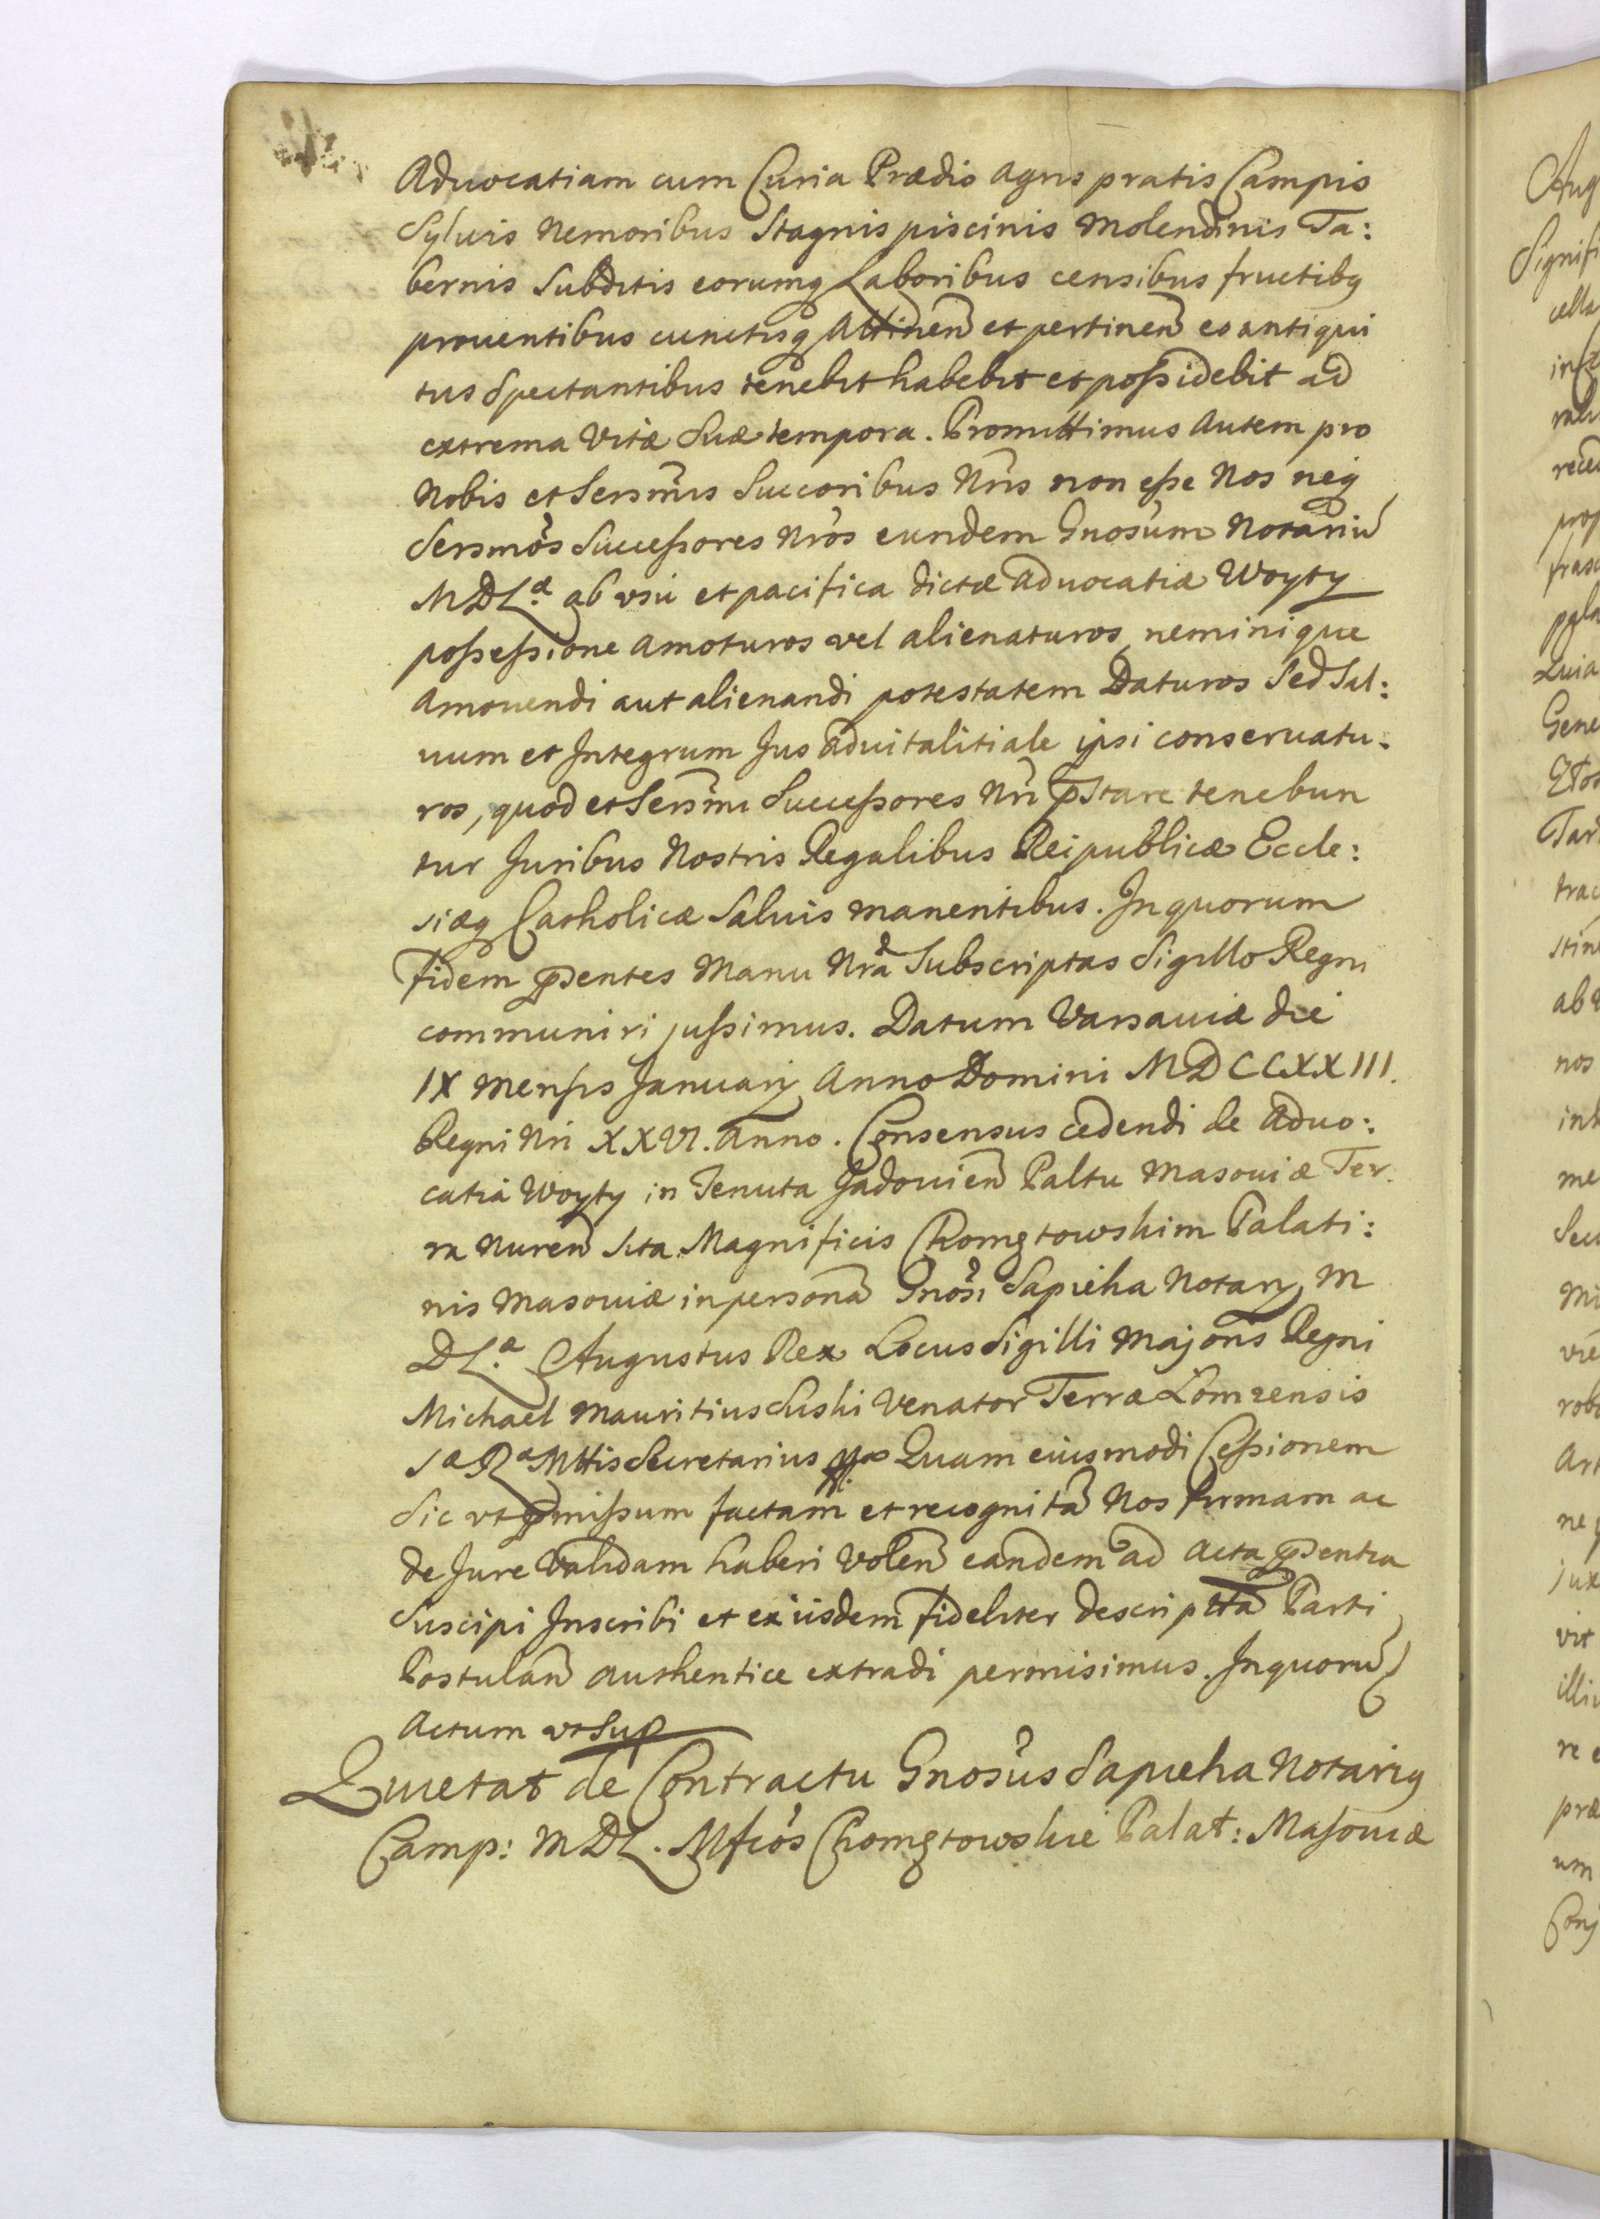 Advocatiam cum Curia Prædio Agris pratis Campis
Sylvis Nemoribus Stagnis piscinis Molendinis Ta:
bernis Subditis eorumq Laboribus censibus fructibq
prouentibus cunctisq Attinen̄ et pertinen̄ eo antiqui
tus Spectantibus tenebit habebit et poſsidebit ad
extrema Vitæ Suæ tempora. Promittimus Autem pro
Nobis et Sersm̄is Succoribus Nr̄is non eſse Nos neq
Sersmōs Succeſsores Nrōs eundem Gnosum Notariū
MDLa. ab vsu et pacifica dictæ advocatiæ Woyty
poſseſsione Amoturos vel alienaturos, neminique
Amouendi aut alienandi potestatem Daturos Sed Sal:
uum et Integrum Jus advitalitiale ipsi conseruatu:
ros, quod et Sersm̄i Succeſsores Nri p̄stare tenebun
tur Juribus Nostris Regalibus Reipublicæ Eccle:
siæq Catholicæ Saluis manentibus. In quorum
Fidem p̄sentes Manu Nrā Subscriptas Sigillo Regni
communiri juſsimus. Datum Varsauiæ die
IX Menſis Januarij Anno Domini MDCCXXIII.
Regni Nri XXVI. Anno. Consensus cedendi de Aduo:
catia Woyty in Tenuta Jadouien̄ Paltu Masouiæ Ter
ra Nuren̄ Sita Magnificis Chomętowskim Palati:
nis Masouiæ in personā Gnosi Sapieha Notarij M
DLa. Augustus Rex Locus Sigilli Majoris Regni
Michael Mauritius Suski Venator Terræ Lomzensis
Sa Ra Mttis Secretarius Quam eiusmodi Ceſsionem
Sic vt p̄miſsum factam et recognitā Nos firmam ac
de Jure Validam haberi Volen̄ eandem ad Acta p̄sentia
Suscipi Inscribi et exiisdem fideliter descriptā Parti
Postulan̄ Authentice extradi permisimus. In quorū
Actum vt Sup
Quietat de Contractu Gnosus Sapieha Notariq
Camp: MDL. Mfcōs Chomętowskie Palat: Maſouiæ